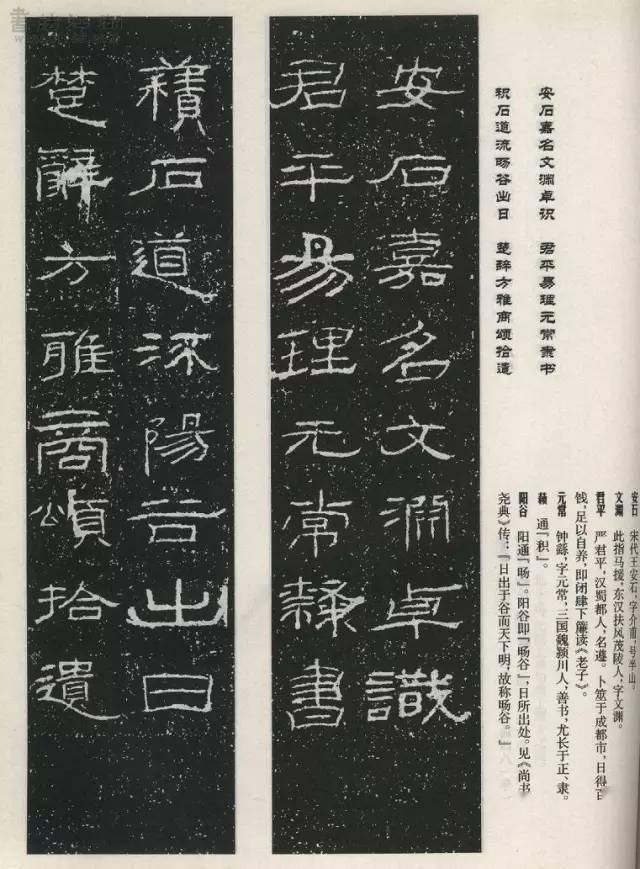 安石嘉名文渊卓识 君平易理元常隶书
积石道流旸谷出日 楚辞方雅商颂拾遗
安石 宋代王安石，字介甫，号半山
文渊 此指马援，东汉扶风茂陵人，字文渊。
君平 严君平，汉蜀都人，名遵。卜筮于成都市，日得百
钱，足以自养，即闭肆下簾读《老子》。
元常 钟繇，字元常，三国魏颍川人，善书，尤长于正、隶。
通「积」。
阳谷 阳通「旸」。阳谷即「旸谷」，日所出处。见《尚书
尧典》传：「日出于谷而天下明，故称旸谷。」
安石嘉名文淵卓識
君平易理元常隸書
𧂐石道流陽谷出日
楚辭方雅商頌拾遺